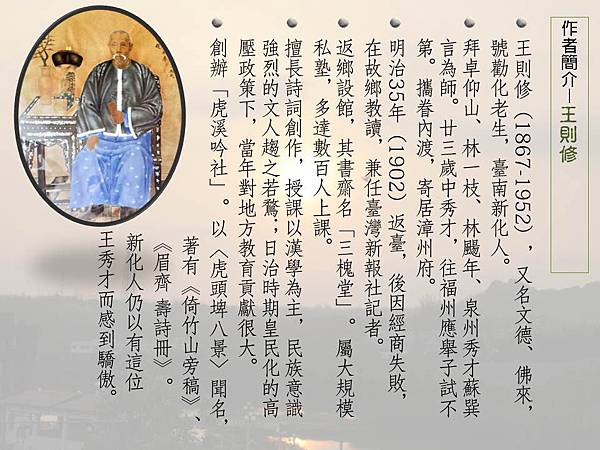 作者簡介—王則修
王則修（1867-1952），又名文德、佛來，
號勸化老生，臺南新化人。
拜卓仰山、林一枝、林颺年、泉州秀才蘇巽
言為師。廿三歲中秀才，往福州應舉子試不
第。攜眷內渡，寄居漳州府。
明治35年（1902）返臺，後因經商失敗，
在故鄉教讀，兼任臺灣新報社記者。
返鄉設館，其書齋名「三槐堂」。屬大規模
私塾，多達數百人上課。
擅長詩詞創作，授課以漢學為主，民族意識
強烈的文人趨之若鶩；日治時期皇民化的高
壓政策下，當年對地方教育貢獻很大。
創辦「虎溪吟社」。以〈虎頭埤八景〉聞名，
著有《倚竹山旁稿》、
《眉齊 壽詩冊》。
新化人仍以有這位
王秀才而感到驕傲。